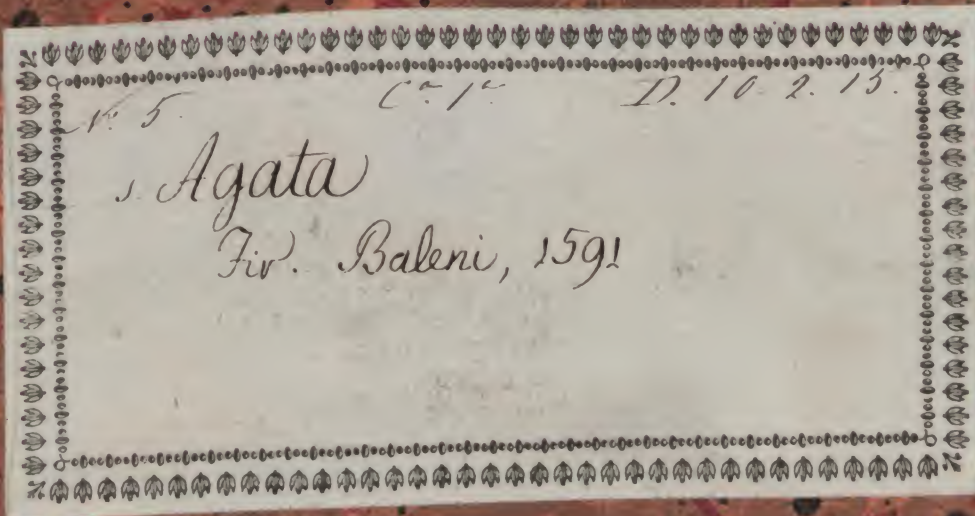 N. 5. Ca. 1a. D. 10. 2. 15.
s. Agata
Fir. Baleni, 1591